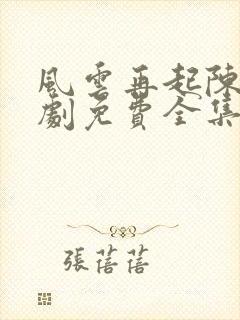 風雲再起陳
劇免費全集
張蓓蓓